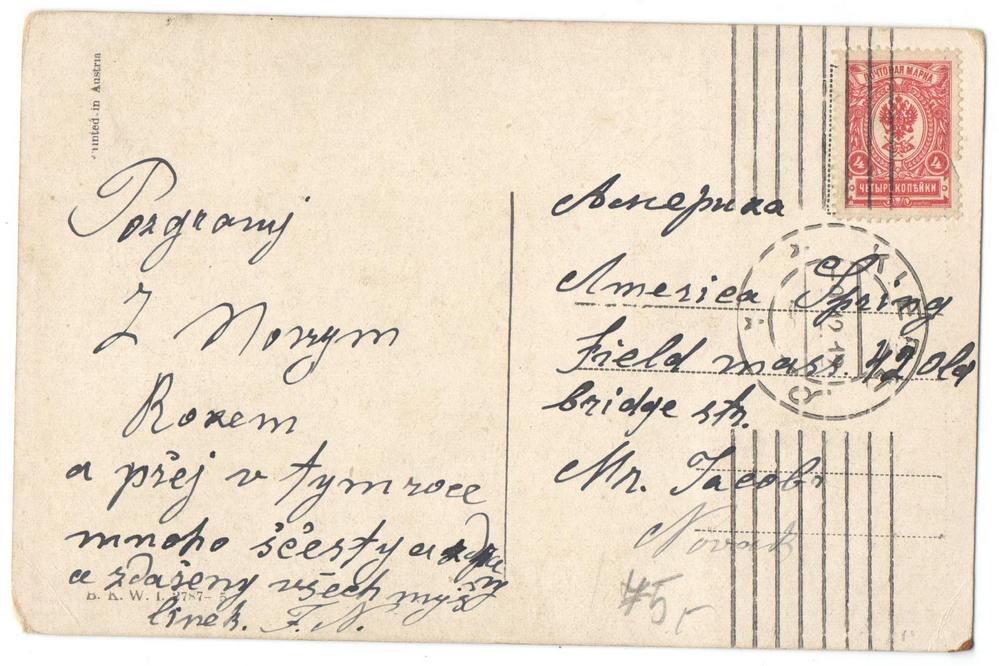 Printed in Austria
Pozgravuj
Z Novzym
Rokem
a přej v tymroce
mnoho ščesty a
a zdašeny všech myš
linek. F. N.
B. K. W. I. 2787-5
ПОЧТОВАЯ МАРКА
4 4
ЧЕТЫРЕ КОПѢЙКИ
Америка
America Spring
Field mass. 42 Old
bridge str.
Mr. Jacob
Novak